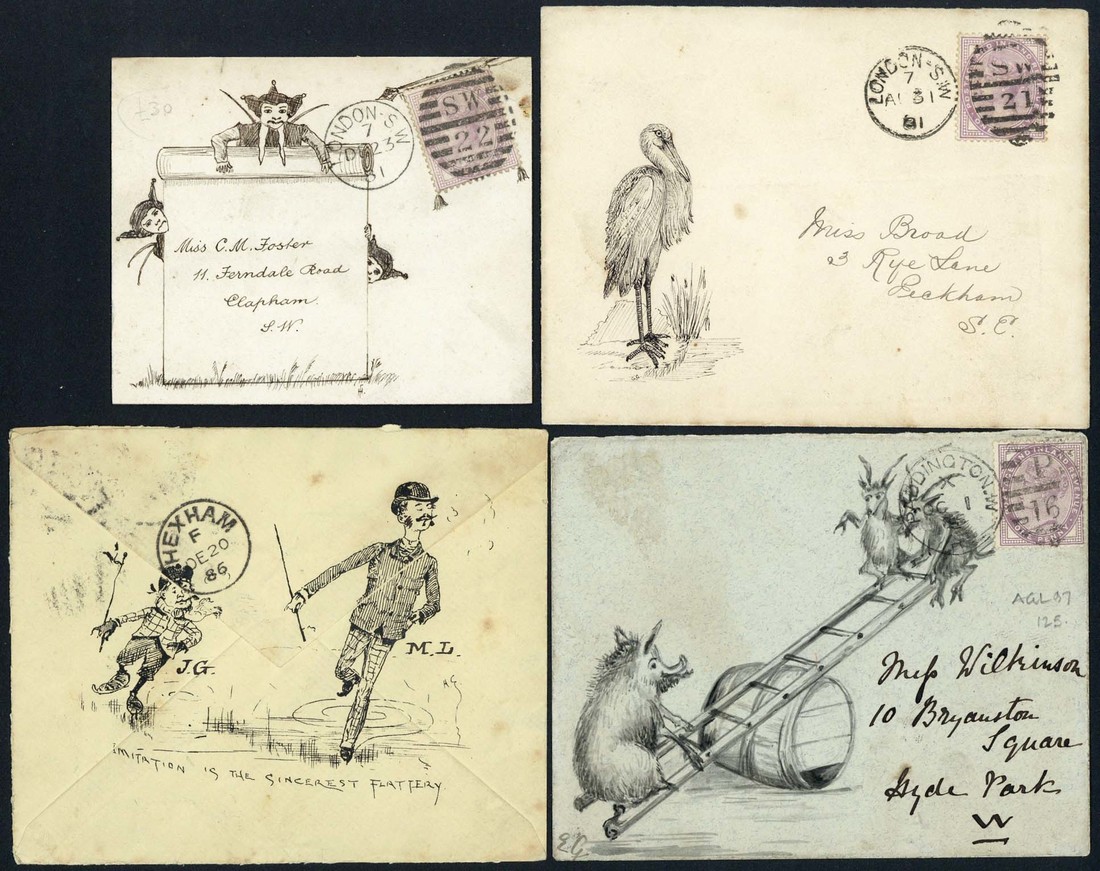 £30
LONDON-S.W
7
DE 23
81
SW
22
Miss C. M. Foster
11. Ferndale Road
Clapham.
S.W.
LONDON-S.W
7
81
SW
21
Miss Broad
3 Rye Lane
Peckham
S.E.
HEXHAM
F
DE 20
86
J.G.
M.L.
A.G
IMITATION IS THE SINCEREST FLATTERY
PADDINGTON.W
X
1
P
16
AGL 97
125.
Miss Wilkinson
10 Bryanston
Square
Hyde Park
W
EG